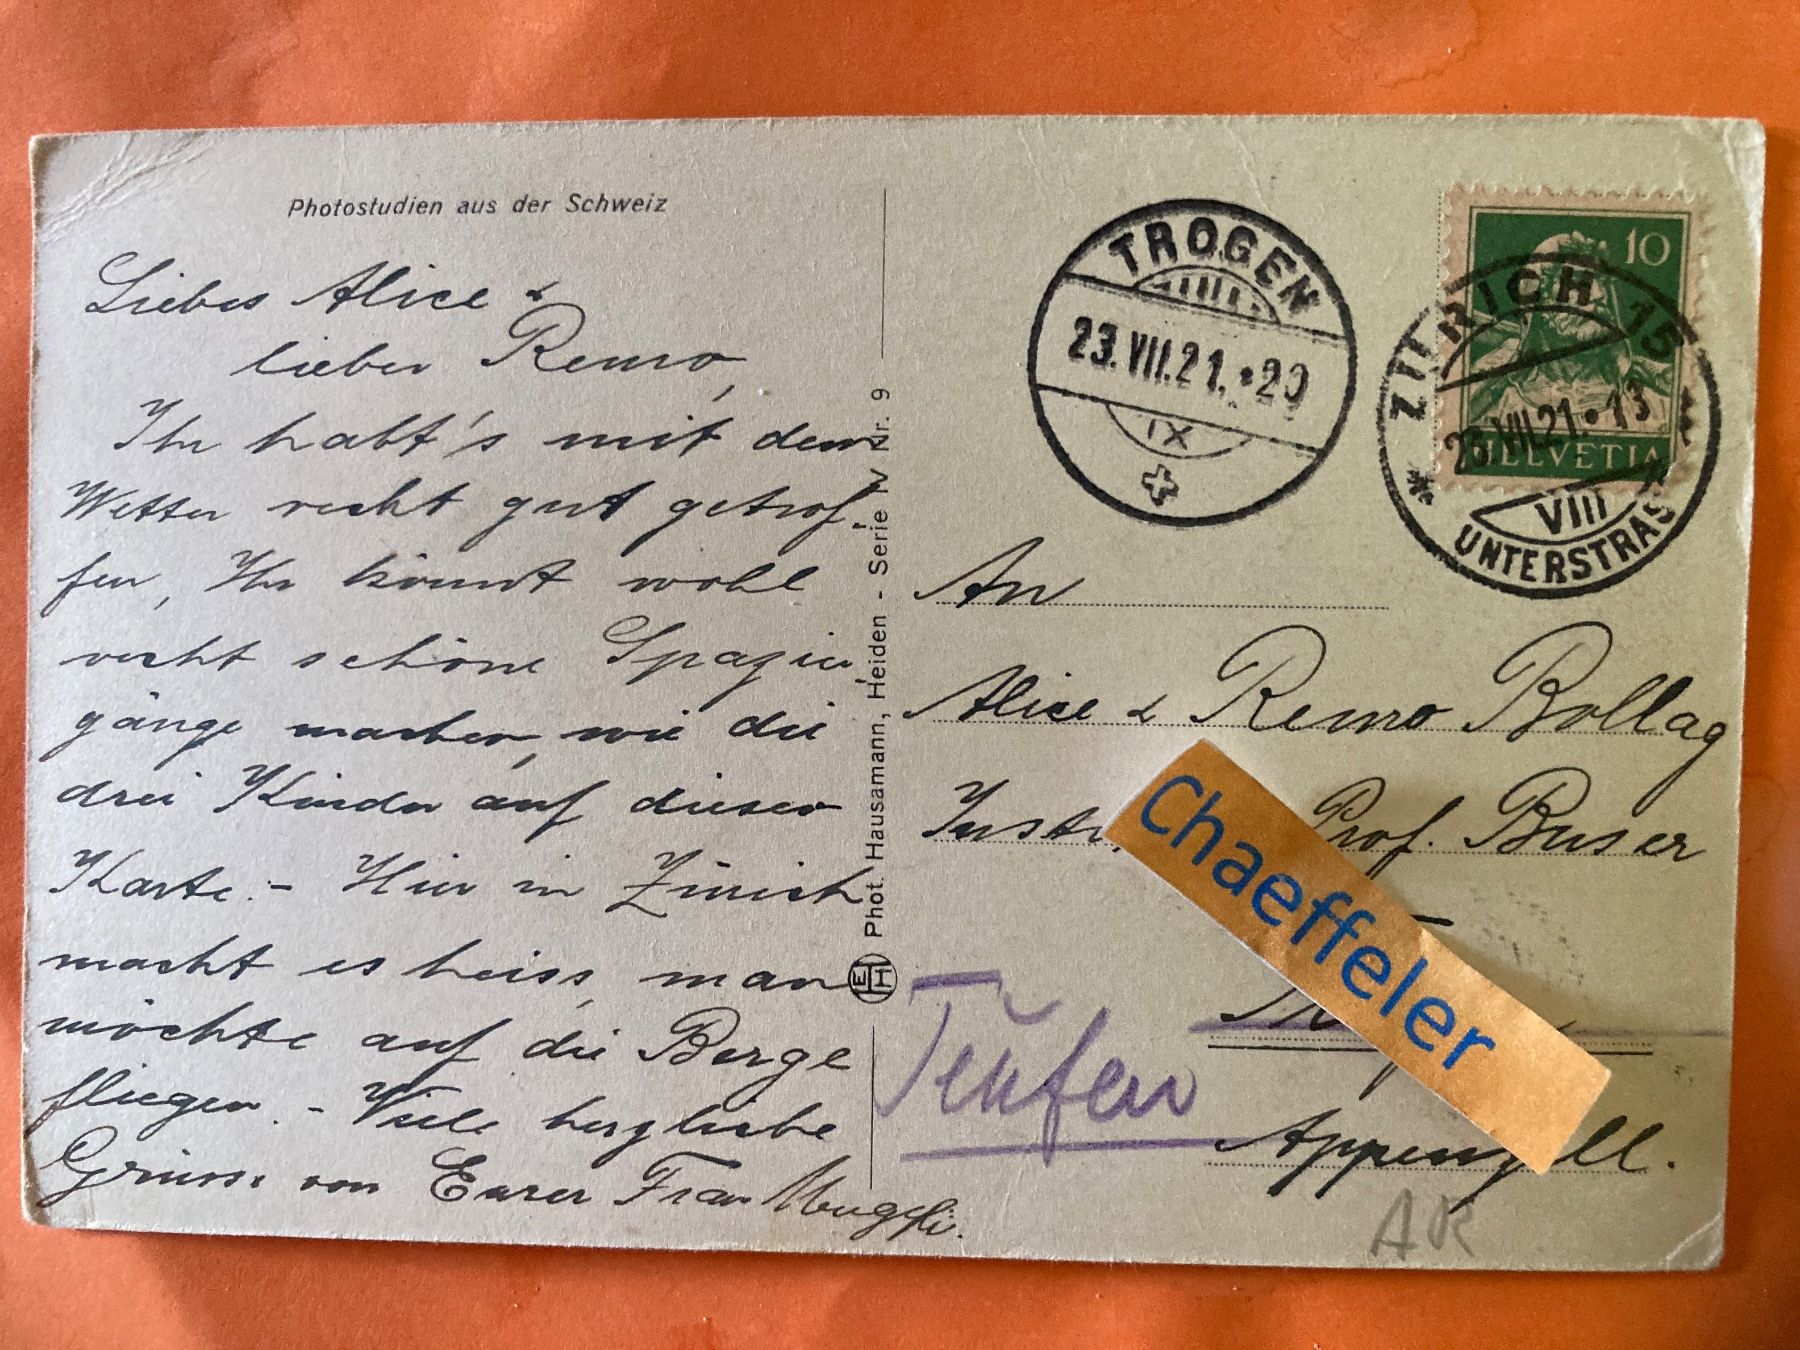 Photostudien aus der Schweiz
Liebes Alice &
lieber Remo,
Ihr habt's mit dem
Wetter recht gut getrof-
fen, Ihr könnt wohl
recht schöne Spazier-
gänge machen, wie die
drei Kinder auf dieser
Karte. - Hier in Zürich
macht es heiss, man
möchte auf die Berge
fliegen. - Viele herzliche
Grüsse von Eurer Frau
Phot. Hausamann, Heiden - Serie IV Nr. 9
EH
TROGEN
23.VII.21.•20
IX
10
HELVETIA
ZÜRICH 15
23.VII.21•13
VIII
UNTERSTRASS
An
Alice & Remo Bollag
Prof. Buser
Chaeffeler
Teufen
Appenzell.
AR